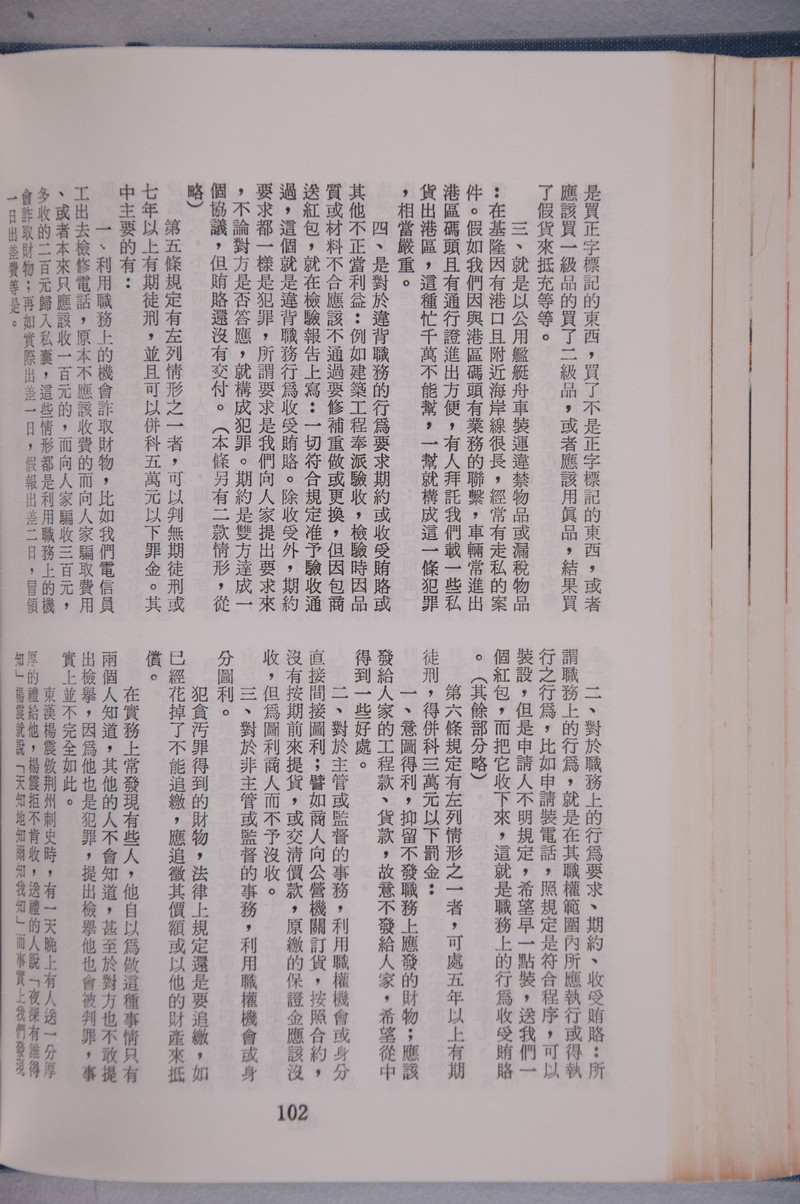 是買正字標記的東西，買了不是正字標記的東西，或者
應該買一級品的買了二級品，或者應該用眞品，結果買
了假貨來抵充等等。
三、就是以公用艦艇舟車裝運違禁物品或漏稅物品
：在基隆因有港口且附近海岸線很長，經常有走私的案
件。假如我們因與港區碼頭有業務的聯繫，車輛常進出
港區碼頭且有通行證進出方便，有人拜託我們載一些私
貨出港區，這種忙千萬不能幫，一幫就構成這一條犯罪
，相當嚴重。
四、是對於違背職務的行爲要求期約或收受賄賂或
其他不正當利益：例如建築工程奉派驗收，檢驗時因品
質或材料不合應該不通過要修補重做或更換，但因包商
送紅包，就在檢驗報告上寫：一切符合規定准予驗收通
過，這個就是違背職務行爲收受賄賂。除收受外，期約
要求都一樣是犯罪，所謂要求是我們向人家提出要求來
，不論對方是否答應，就構成犯罪。期約是雙方達成一
個協議，但賄賂還沒有交付。（本條另有二款情形，從
略）
第五條規定有左列情形之一者，可以判無期徒刑或
七年以上有期徒刑，並且可以併科五萬元以下罪金。其
中主要的有：
一、利用職務上的機會詐取財物，比如我們電信員
工出去檢修電話，原本不應該收費的而向人家騙取費用
、或者本來只應該收一百元的，而向人家騙收三百元，
多收的二百元歸入私囊，這些情形都是利用職務上的機
會詐取財物；再如實際出差一日，假報出差二日，冒領
一日出差費等是。
二、對於職務上的行爲要求、期約、收受賄賂：所
謂職務上的行爲，就是在其職權範圍內所應執行或得執
行之行爲，比如申請裝電話，照規定是符合程序，可以
裝設，但是申請人不明規定，希望早一點裝，送我們一
個紅包，而把它收下來，這就是職務上的行爲收受賄賂
。（其餘部分略）
第六條規定有左列情形之一者，可處五年以上有期
徒刑，得併科三萬元以下罰金：
一、意圖得利，抑留不發職務上應發的財物；應該
發給人家的工程款、貨款，故意不發給人家，希望從中
得到一些好處。
二、對於主管或監督的事務，利用職權機會或身分
直接間接圖利；譬如商人向公營機關訂貨，按照合約，
沒有按期前來提貨，或交清價款，原繳的保證金應該沒
收，但爲圖利商人而不予沒收。
三、對於非主管或監督的事務，利用職權機會或身
分圖利。
犯貪汚罪得到的財物，法律上規定還是要追繳，如
已經花掉了不能追繳，應追徵其價額或以他的財產來抵
償。
在實務上常發現有些人，他自以爲做這種事情只有
兩個人知道，其他的人不會知道，甚至於對方也不敢提
出檢舉，因爲他也是犯罪，提出檢舉他也會被判罪，事
實上並不完全如此。
東漢楊震做荆州刺史時，有一天晚上有人送一分厚
厚的禮給他，楊震拒不肯收，送禮的人說「夜深有誰得
知」楊震就說「天知地知爾知我知」而事實上我們發現
102